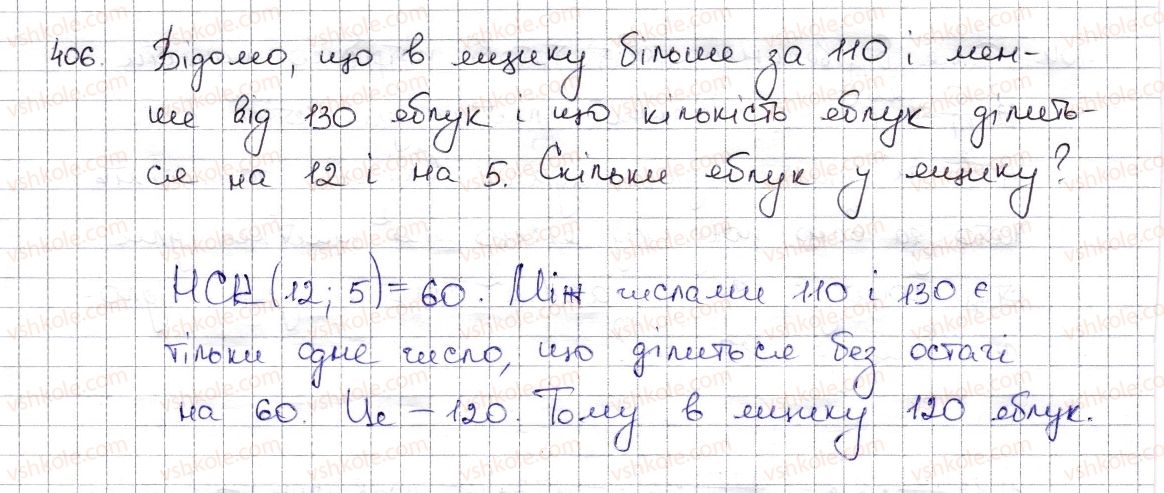 406. Відомо, що в ящику більше за 110 і мен-
ше від 130 яблук і що кількість яблук ділить-
ся на 12 і на 5. Скільки яблук у ящику?
НСК(12; 5) = 60. Між числами 110 і 130 є
тільки одне число, що ділиться без остачі
на 60. Це – 120. Тому в ящику 120 яблук.